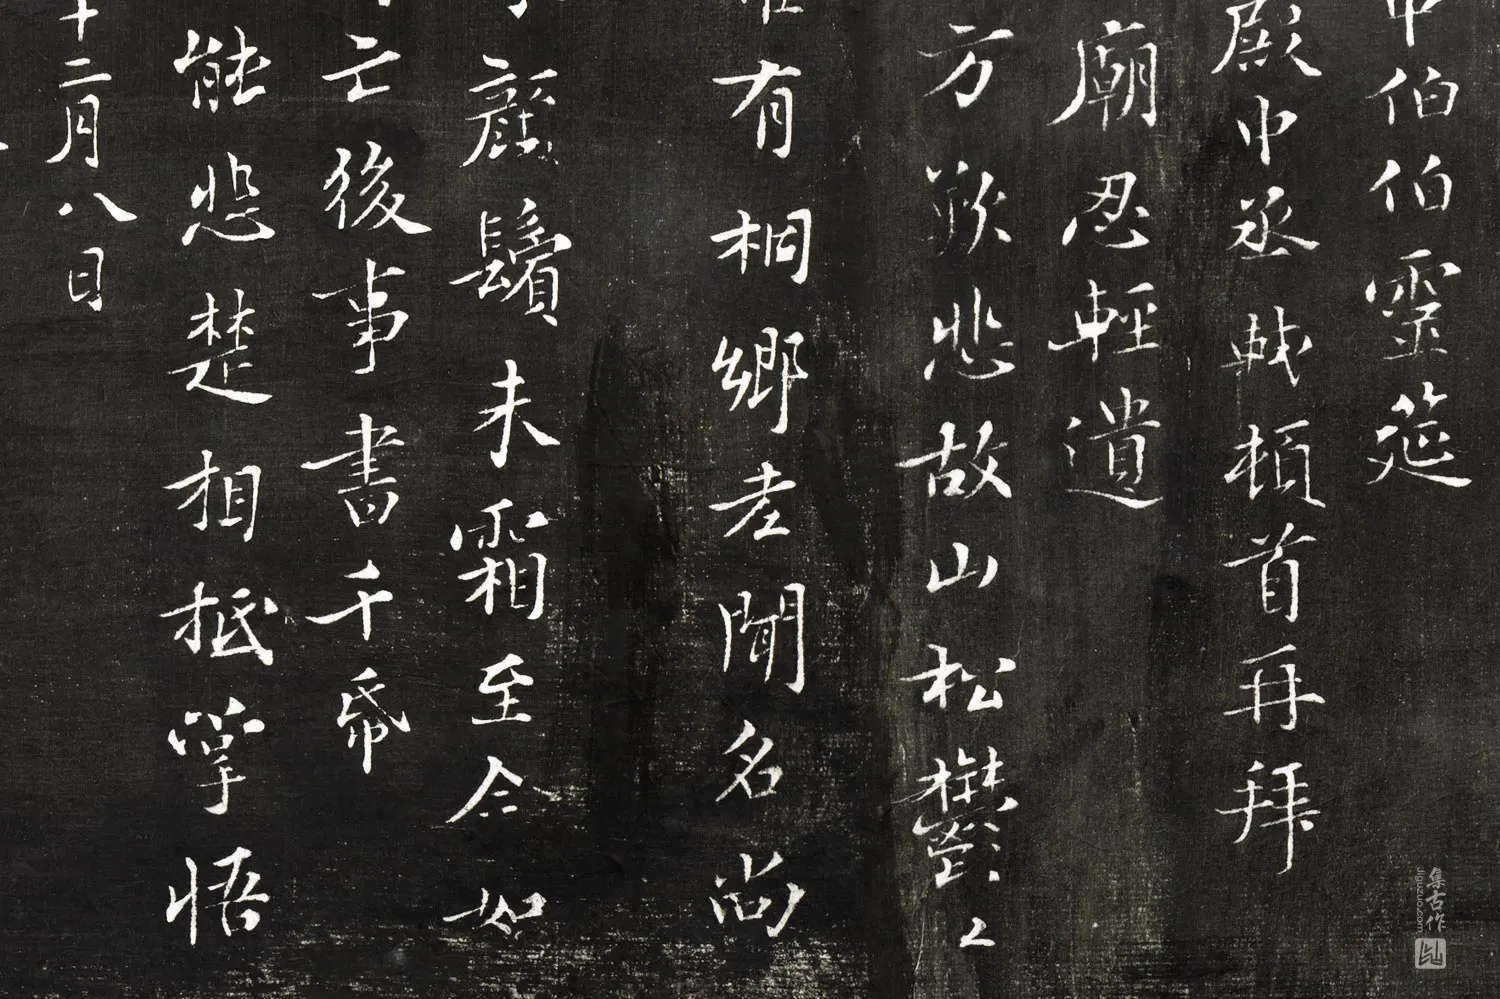 中伯伯靈筵
殿中丞戩頓首再拜
廟忍輕遺
方歎悲故山松鬱〻
有桐鄉老聞名尚
顏鬢未霜至今如
亡後事書千帋
能悲楚相抵掌悟
十二月八日
集古作
jiguzuo.com